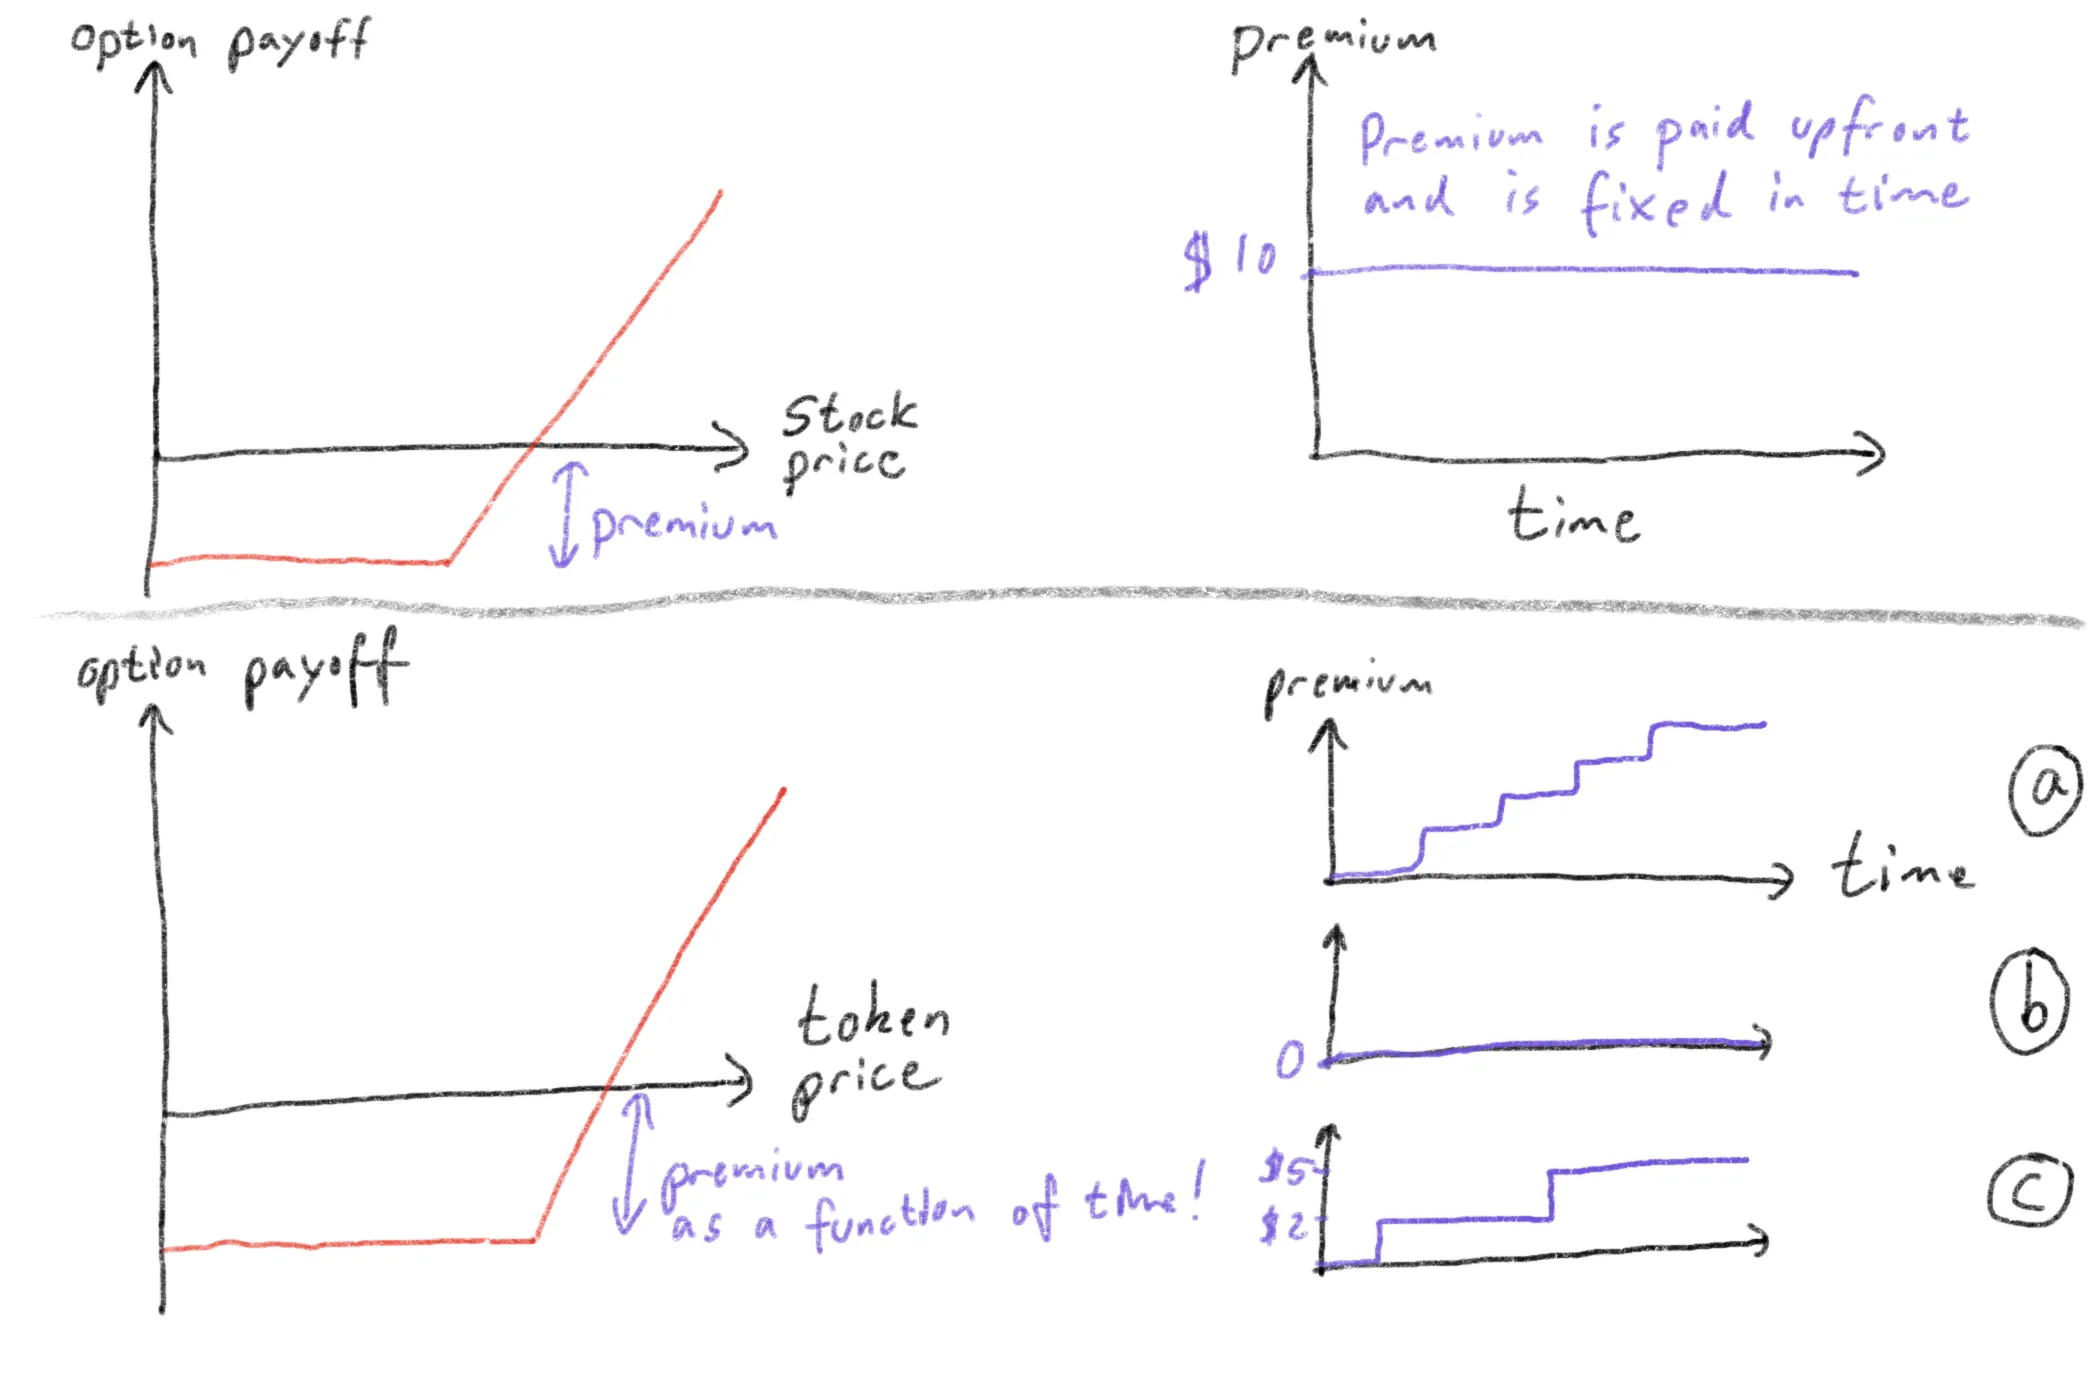 option payoff
Stock
price
premium
Premium
Premium is paid upfront
and is fixed in time
$10
time
option payoff
token
price
premium
as a function of time!
premium
time
a
0
b
$5
$2
c